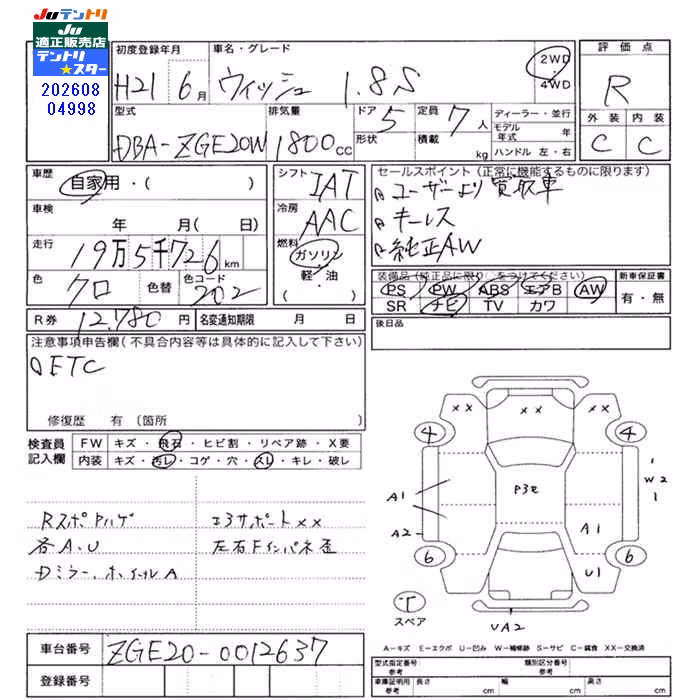 JUテントリ
JUテントリ
JU
適正販売店
テントリ
★スター
202608
04998
初度登録年月
車名・グレード
評価点
H21 6月
ウィッシュ 1.8S
2WD
・
4WD
R
型式
排気量
ドア 5
定員 7人
ディーラー・並行
外装 内装
モデル年式 年
C C
DBA-ZGE20W
1800cc
形状
積載 kg
ハンドル 左・右
車歴
自家用・( )
シフト IAT
セールスポイント(正常に機能するものに限ります)
ユーザーより買取車
キーレス
純正AW
車検 年 月( 日)
冷房 AAC
走行 19万5千726km
燃料
ガソリン
・
軽・油
装備品(純正品に限り)をつけてください
新車保証書
色 クロ
色替
色コード 202
PS PW ABS エアB AW
有・無
SR ナビ TV カワ
R券 12,780円
名変通知期限 月 日
後日品
注意事項申告欄(不具合内容等は具体的に記入して下さい)
ETC
修復歴 有 〔箇所
検査員
記入欄
FW キズ・飛石・ヒビ割・リペア跡・X要
内装 キズ・汚レ・コゲ・穴・スレ・キレ・破レ
Rスポ Pハゲ
各A.U
Dミラー、ホイールA
エアサポートxx
左右Fインパネ歪
xx xx xx
4 4
P3セ
W2
A1
A2
A1
6 6
U1
T
スペア
UA2
A-キズ E-エクボ U-凹み W-補修跡 S-サビ C-腐食 XX-交換済
車台番号 ZGE20-0012637
登録番号
型式指定番号 参考
類別区分番号 参考
車庫証明用 参考
長さ cm
幅 cm
高さ cm